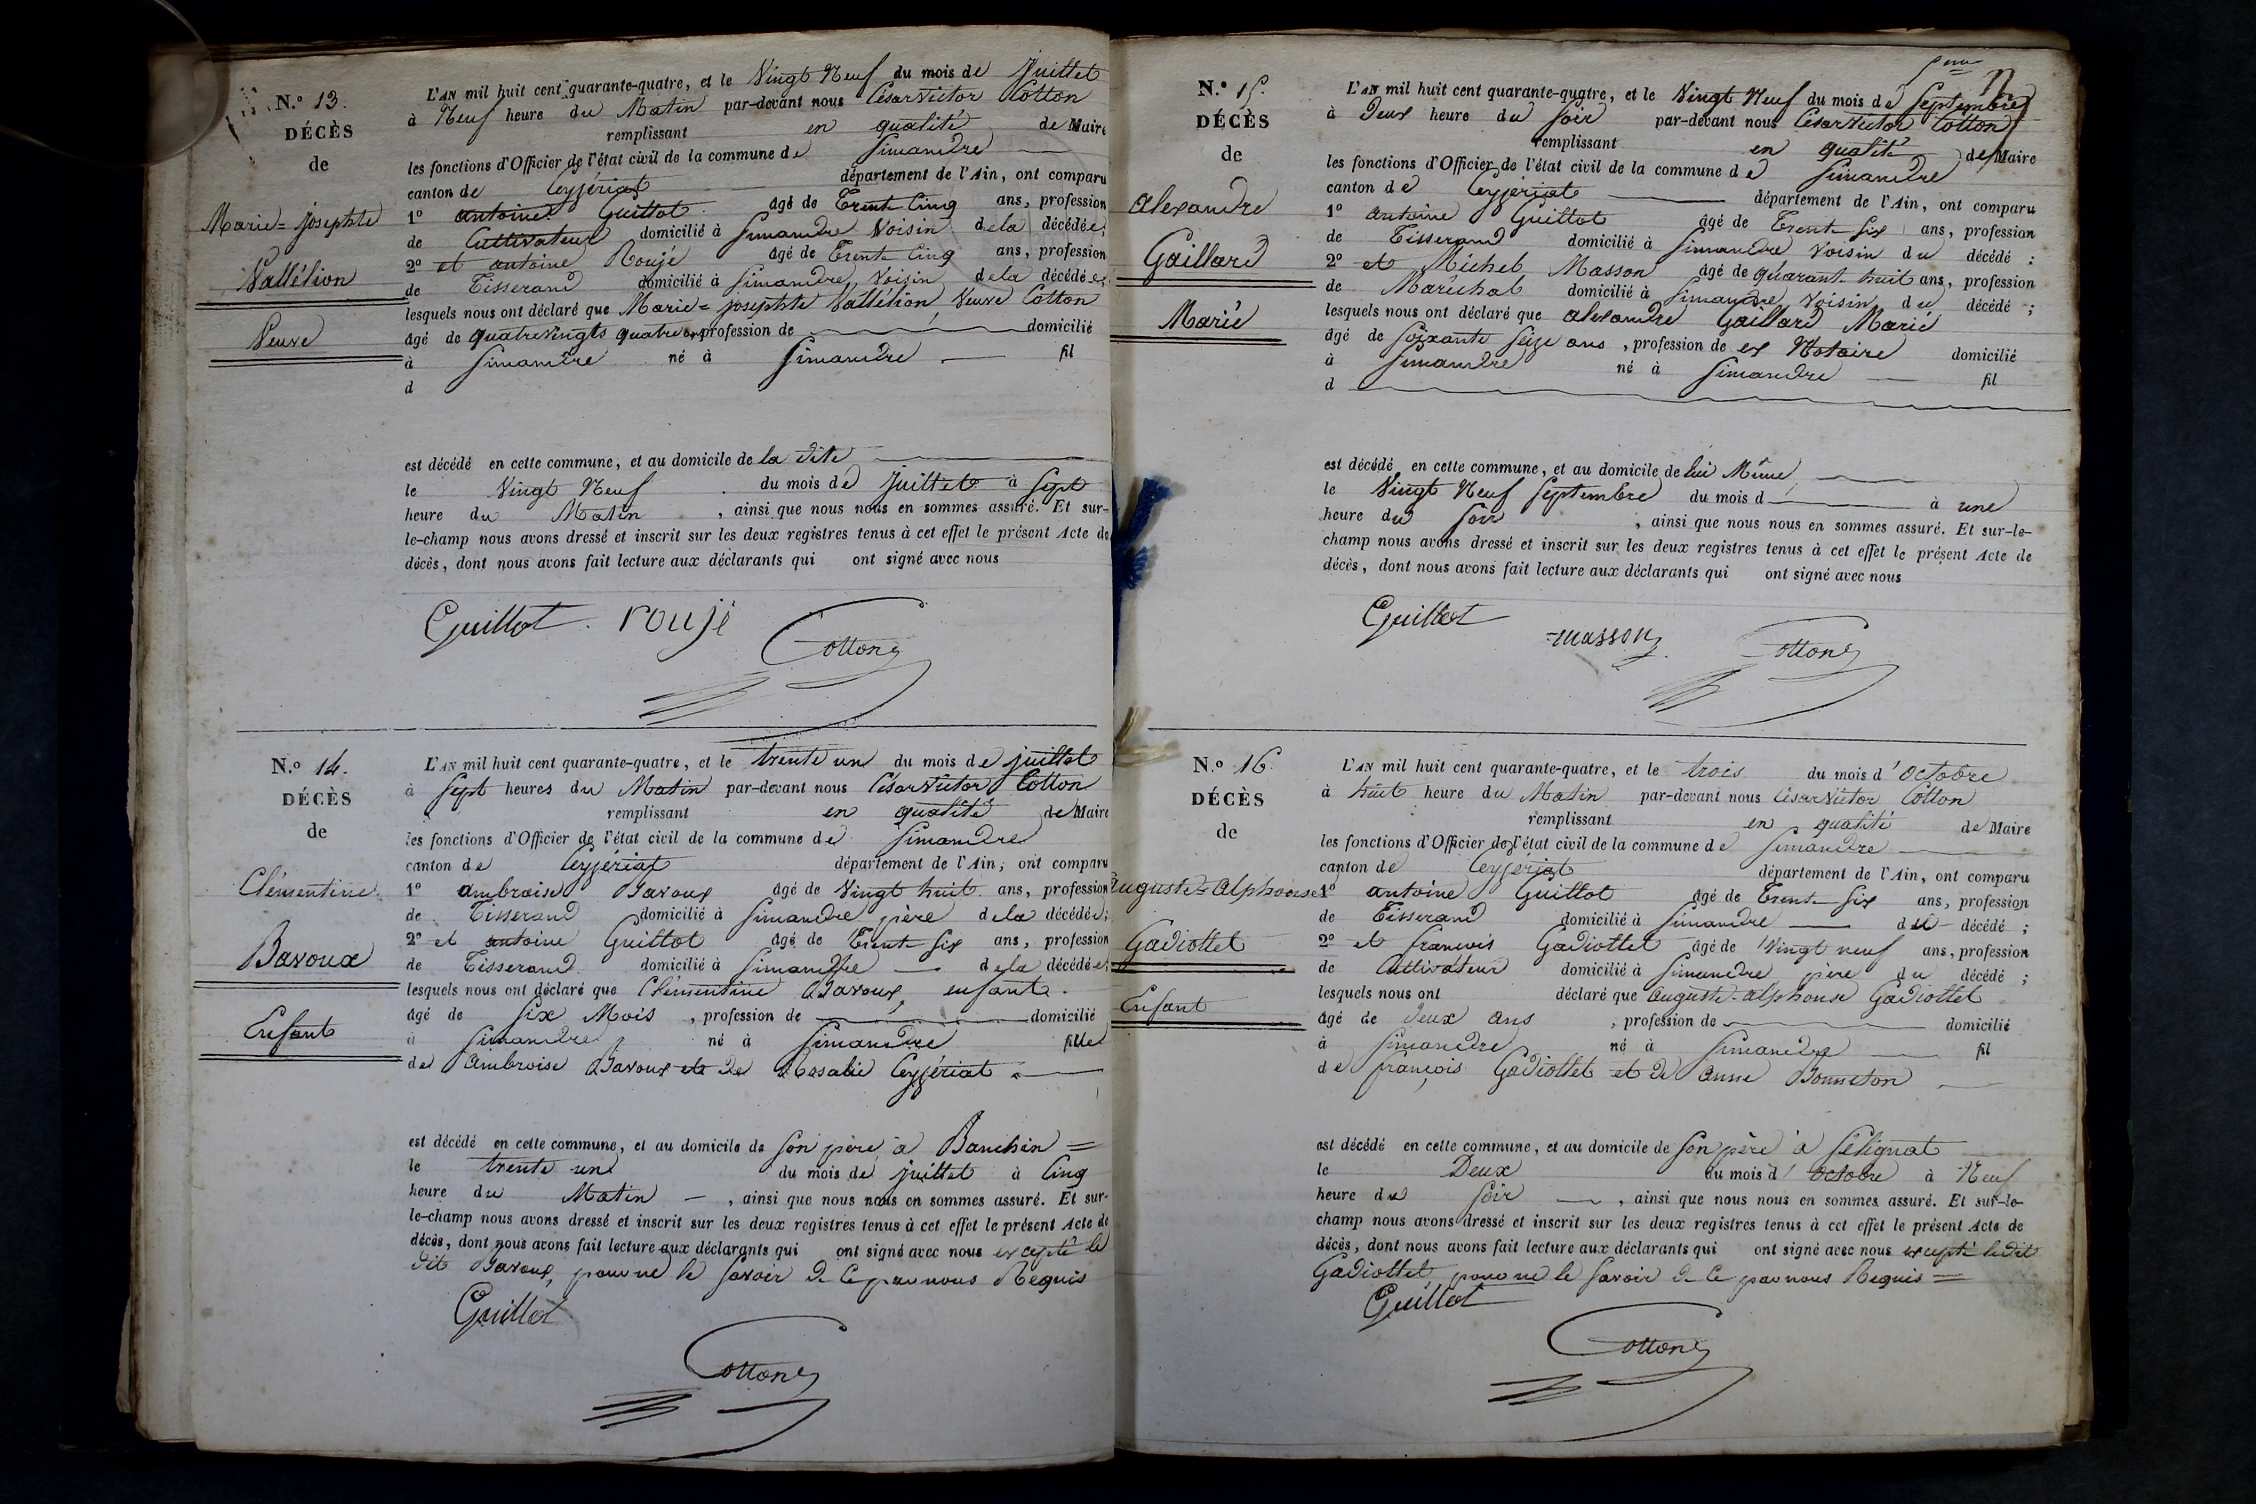 N.º 13.
DÉCÈS
de
Marie=josephte
Vallélion
Veuve
L'AN mil huit cent quarante-quatre, et le Vingt Neuf du mois de Juillet
à Neuf heure du Matin par-devant nous César Victor Cotton
remplissant en qualité de Maire
les fonctions d'Officier de l'état civil de la commune de Simandre
canton de Ceyzériat département de l'Ain, ont comparu
1º antoine Guillot agé de Trente Cinq ans, profession
de Cultivateur domicilié à Simandre Voisin de la décédée;
2º et antoine Roujé agé de Trente Cinq ans, profession
de Tisserand domicilié à Simandre, Voisin de la décédée;
lesquels nous ont déclaré que Marie=josephte Vallélion, Veuve Cotton
agé de quatre vingts quatre ans, profession de domicilié
à Simandre né à Simandre fil
d
est décédé en cette commune, et au domicile de la dite
le Vingt Neuf du mois de Juillet à Sept
heure du Matin, ainsi que nous nous en sommes assuré. Et sur-
le-champ nous avons dressé et inscrit sur les deux registres tenus à cet effet le présent Acte de
décès, dont nous avons fait lecture aux déclarants qui ont signé avec nous
Guillot rouje Cotton
N.º 14.
DÉCÈS
de
Clémentine
Bavoux
Enfant
L'AN mil huit cent quarante-quatre, et le trente un du mois de juillet
à Sept heures du Matin par-devant nous César Victor Cotton
remplissant en qualité de Maire
les fonctions d'Officier de l'état civil de la commune de Simandre
canton de Ceyzériat département de l'Ain, ont comparu
1º ambroise Bavoux agé de Vingt huit ans, profession
de Tisserand domicilié à Simandre père de la décédée;
2º et antoine Guillot agé de Trente Six ans, profession
de Tisserand domicilié à Simandre de la décédée;
lesquels nous ont déclaré que Clémentine Bavoux, enfant
agé de Six Mois, profession de domicilié
à Simandre né à Simandre fille
de Ambroise Bavoux et de Rosalie Ceyzériat
est décédé en cette commune, et au domicile de Son père à Banchin =
le trente un du mois de juillet à Cinq
heure du Matin, ainsi que nous nous en sommes assuré. Et sur-
le-champ nous avons dressé et inscrit sur les deux registres tenus à cet effet le présent Acte de
décès, dont nous avons fait lecture aux déclarants qui ont signé avec nous excepté le
dit Bavoux, pour ne le Savoir de Ce par nous Requis
Guillot
Cotton
N.º 15.
DÉCÈS
de
alexandre
Gaillard
Marié
L'AN mil huit cent quarante-quatre, et le Vingt Neuf du mois de Septembre
à Deux heure du Soir par-devant nous César Victor Cotton
remplissant en qualité de Maire
les fonctions d'Officier de l'état civil de la commune de Simandre
canton de Ceyzériat département de l'Ain, ont comparu
1º antoine Guillot agé de Trente Six ans, profession
de Tisserand domicilié à Simandre Voisin du décédé;
2º et Michel Masson agé de quarante huit ans, profession
de Maréchal domicilié à Simandre, Voisin du décédé;
lesquels nous ont déclaré que alexandre Gaillard Marié
agé de Soixante Seize ans, profession de ex Notaire domicilié
à Simandre né à Simandre fil
d
est décédé en cette commune, et au domicile de lui Même
le Vingt Neuf Septembre du mois d à une
heure du Soir, ainsi que nous nous en sommes assuré. Et sur-le-
champ nous avons dressé et inscrit sur les deux registres tenus à cet effet le présent Acte de
décès, dont nous avons fait lecture aux déclarants qui ont signé avec nous
Guillot
masson Cotton
N.º 16.
DÉCÈS
de
Auguste=alphonse
Gadiollet
Enfant
L'AN mil huit cent quarante-quatre, et le trois du mois d'Octobre
à huit heure du Matin par-devant nous César Victor Cotton
remplissant en qualité de Maire
les fonctions d'Officier de l'état civil de la commune de Simandre
canton de Ceyzériat département de l'Ain, ont comparu
1º antoine Guillot agé de Trente Six ans, profession
de Tisserand domicilié à Simandre du décédé;
2º et françois Gadiollet agé de Vingt neuf ans, profession
de Cultivateur domicilié à Simandre père du décédé;
lesquels nous ont déclaré que auguste-alphonse Gadiollet
agé de deux ans, profession de domicilié
à Simandre né à Simandre fil
de françois Gadiollet et de anne Bonneton
est décédé en cette commune, et au domicile de Son père à Sélignat
le Deux du mois d'Octobre à Neuf
heure du Soir, ainsi que nous nous en sommes assuré. Et sur-le-
champ nous avons dressé et inscrit sur les deux registres tenus à cet effet le présent Acte de
décès, dont nous avons fait lecture aux déclarants qui ont signé avec nous excepté le dit
Gadiollet, pour ne le Savoir de Ce par nous Requis =
Guillot
Cotton